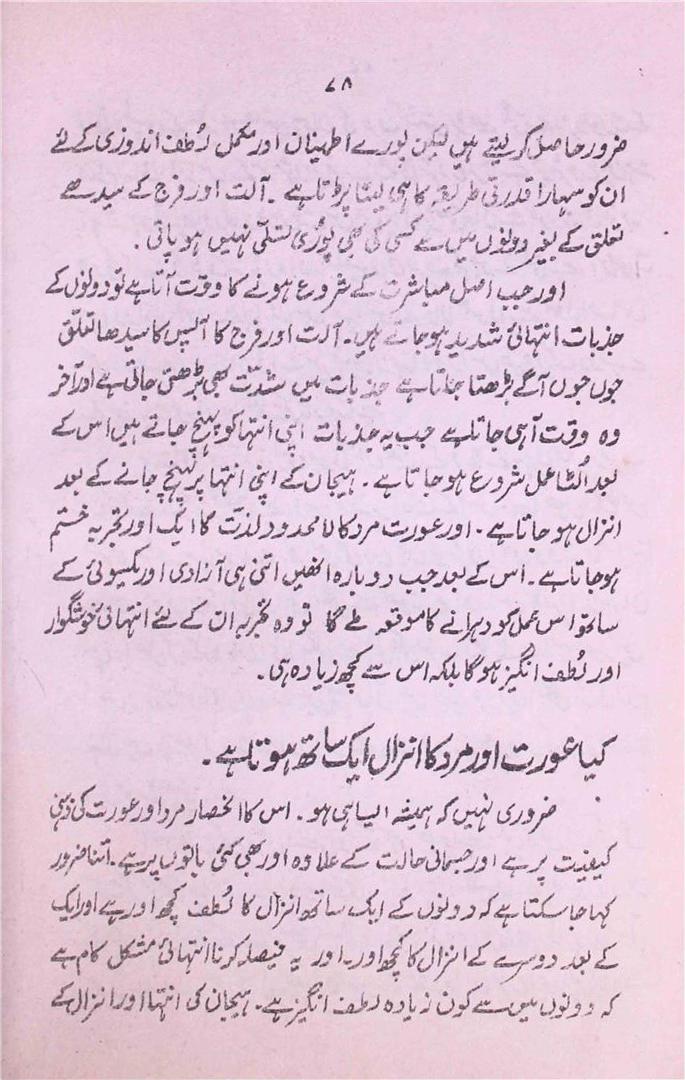 ۷۸
ضرور حاصل کر لیتے ہیں لیکن پورے اطمینان اور مکمل لُطف اندوزی کے لئے
ان کو سہارا قدرتی طریقہ کا ہی لینا پڑتا ہے ۔ آلت اور فرج کے سیدھے
تعلق کے بغیر دونوں میں سے کسی کی بھی پوری تسلّی نہیں ہو پاتی ۔
اور جب اصل مباشرت کے شروع ہونے کا وقت آتا ہے تو دونوں کے
جذبات انتہائی شدید ہو جاتے ہیں ۔ آلت اور فرج کا آپس کا سیدھا تعلّق
جوں جوں آگے بڑھتا جاتا ہے جذبات میں شدّت بھی بڑھتی جاتی ہے اور آخر
وہ وقت آہی جاتا ہے جب یہ جذبات اپنی انتہا کو پہنچ جاتے ہیں اس کے
بعد اُلٹا عمل شروع ہو جاتا ہے ۔ ہیجان کے اپنی انتہا پر پہنچ جانے کے بعد
انزال ہو جاتا ہے ۔ اور عورت مرد کا لامحدود لذّت کا ایک اور تجربہ ختم
ہو جاتا ہے ۔ اس کے بعد جب دوبارہ انھیں اتنی ہی آزادی اور یکسوئی کے
ساتھ اس عمل کو دہرانے کا موقعہ ملے گا تو وہ تجربہ ان کے لئے انتہائی خوشگوار
اور لُطف انگیز ہو گا بلکہ اس سے کچھ زیادہ ہی ۔
کیا عورت اور مرد کا انزال ایک ساتھ ہوتا ہے ۔
ضروری نہیں کہ ہمیشہ ایسا ہی ہو ۔ اس کا انحصار مرد اور عورت کی ذہنی
کیفیت پر ہے اور جسمانی حالت کے علاوہ اور بھی کئی باتوں پر ہے ۔ اتنا ضرور
کہا جا سکتا ہے کہ دونوں کے ایک ساتھ انزال کا لُطف کچھ اور ہے اور ایک
کے بعد دوسرے کے انزال کا کچھ اور ۔ اور یہ فیصلہ کرنا انتہائی مشکل کام ہے
کہ دونوں میں سے کون زیادہ لطف انگیز ہے ۔ ہیجان کی انتہا اور انزال کے